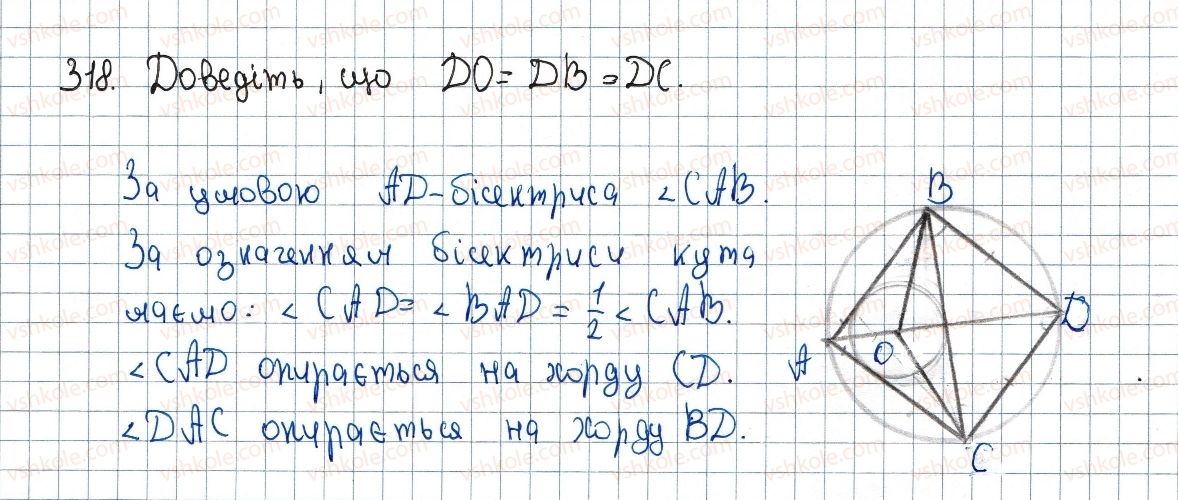 318. Доведіть, що DO = DB = DC.
За умовою AD - бісектриса ∠CAB.
За означенням бісектриси кута
маємо: ∠CAD = ∠BAD = 1/2 ∠CAB.
∠CAD опирається на хорду CD.
∠DAC опирається на хорду BD.
B
D
A
O
C
vshkole.com